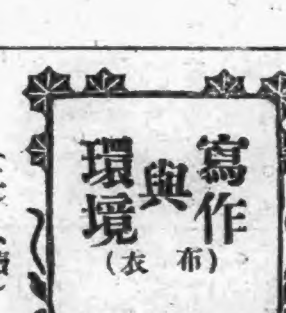 寫作
與
環境
(布衣)